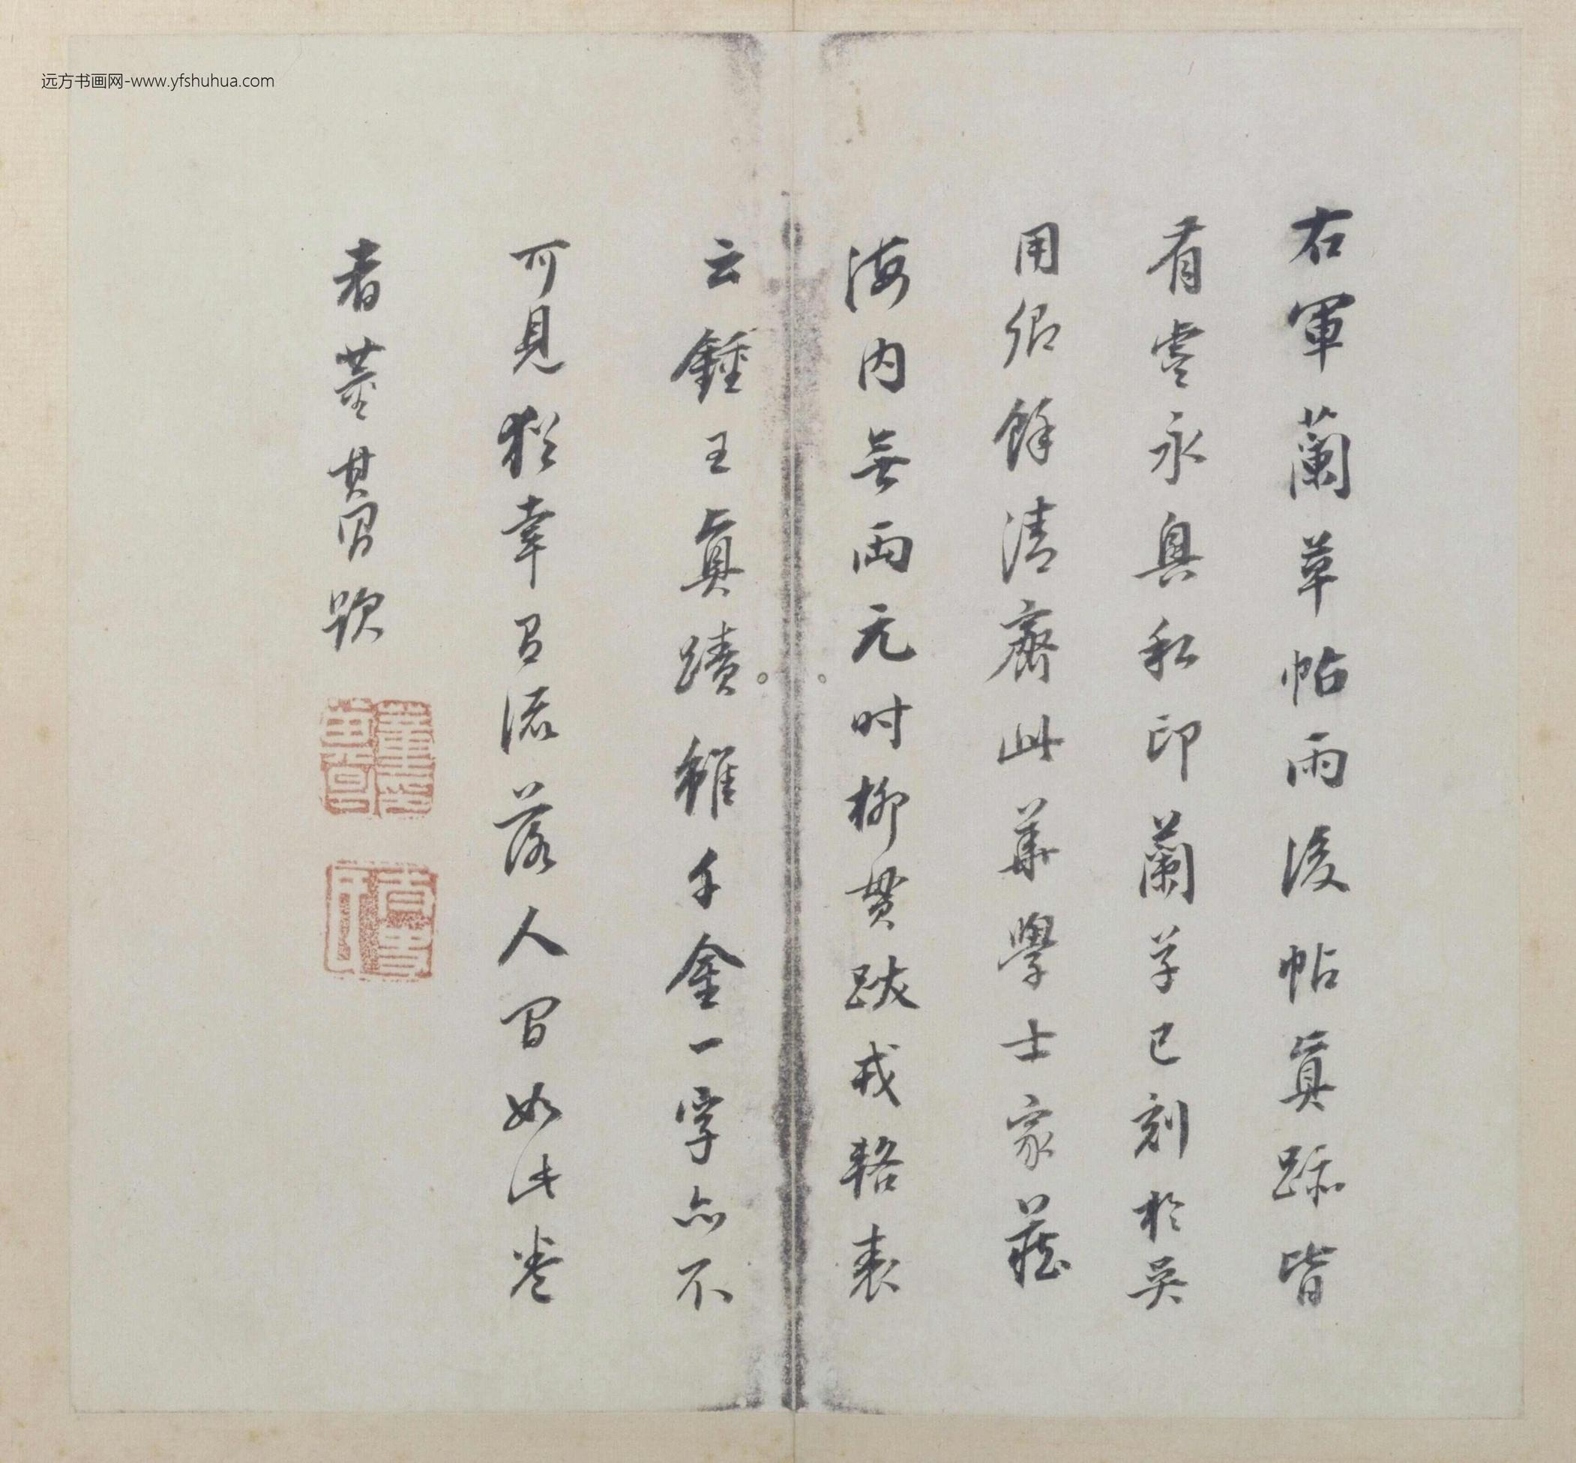 远方书画网-www.yfshuhua.com
右軍蘭草帖雨後帖真跡皆
有虞永興私印蘭草已刻於吳
用卿餘清齋此華學士家藏
海内無兩元时柳貫跋戎輅表
云鍾王真蹟雖千金一字亦不
可見猶幸有流落人間如此卷
者董其昌題